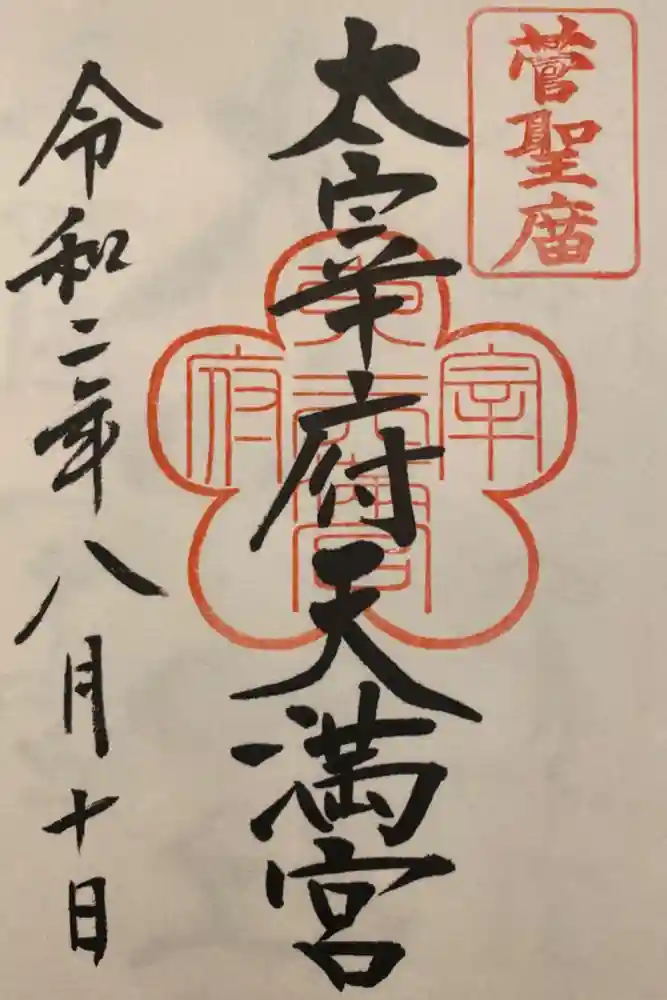 菅聖廟
太宰府天満宮
令和二年八月十日
宰
府
天満宮